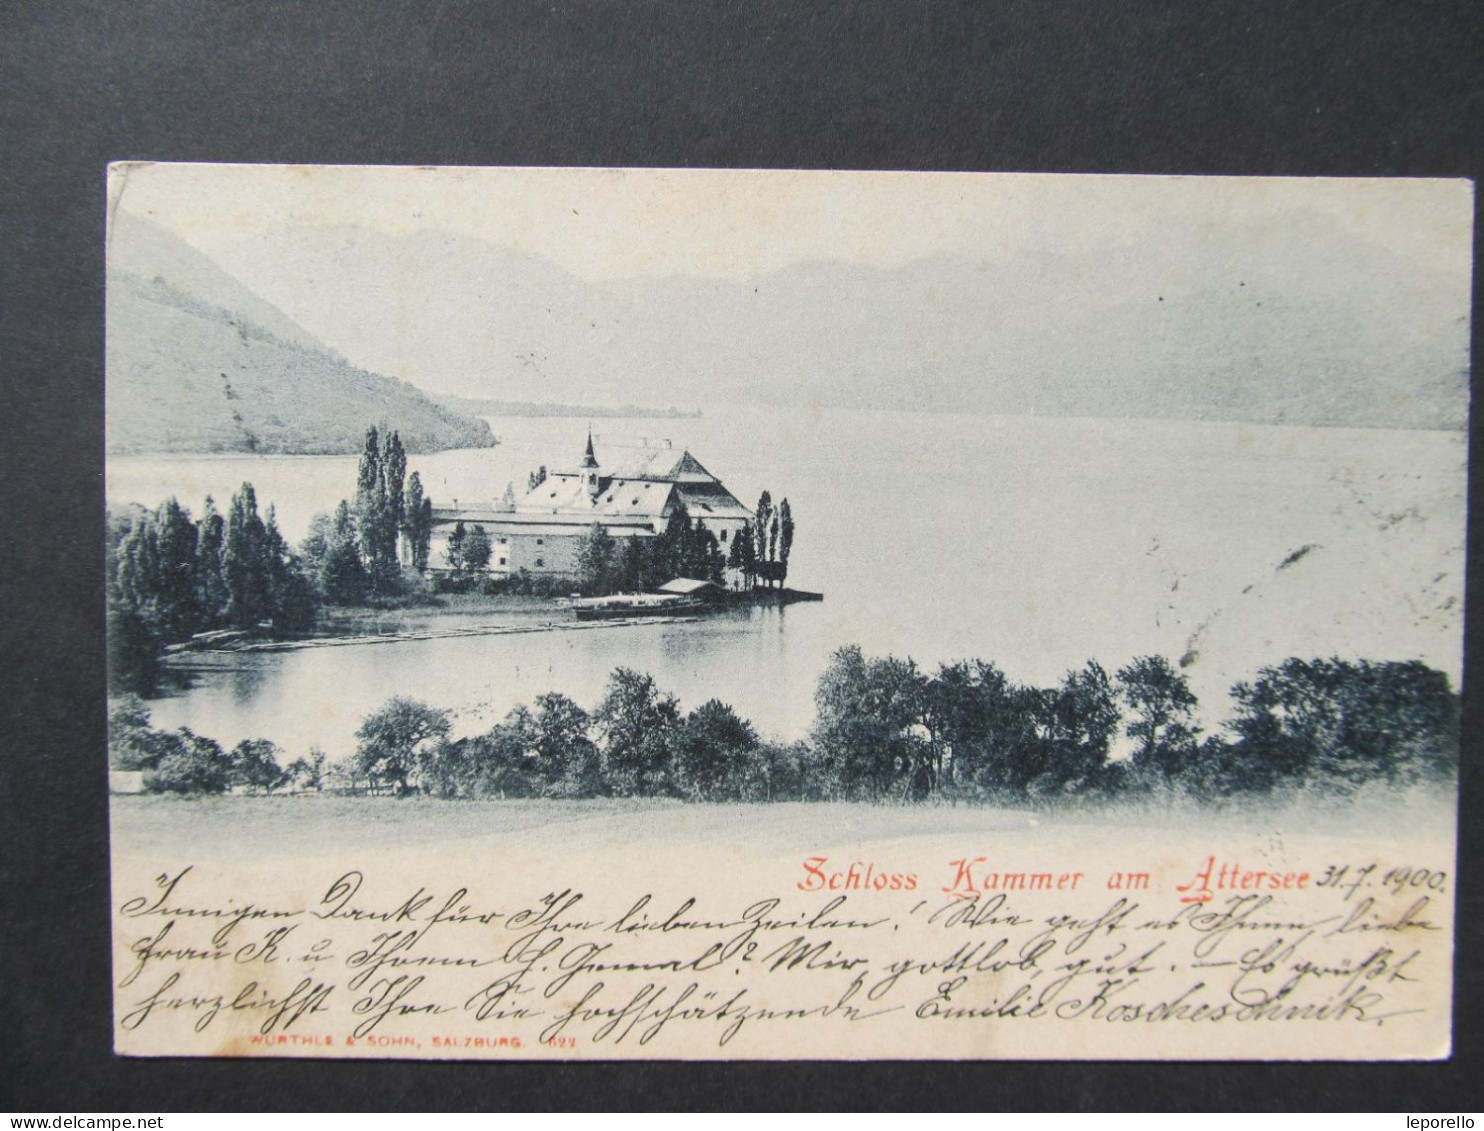 Schloss Kammer am Attersee 31.7.1900.
Innigen Dank für Ihre lieben Zeilen! Wie geht es Ihnen, liebe
Frau K. u Ihrem H. Gemal? Mir, gottlob, gut. – Es grüßt
herzlichst Ihre Sie hochschätzende Emilie Koscheschnik.
WÜRTHLE & SOHN, SALZBURG. 622
leporello